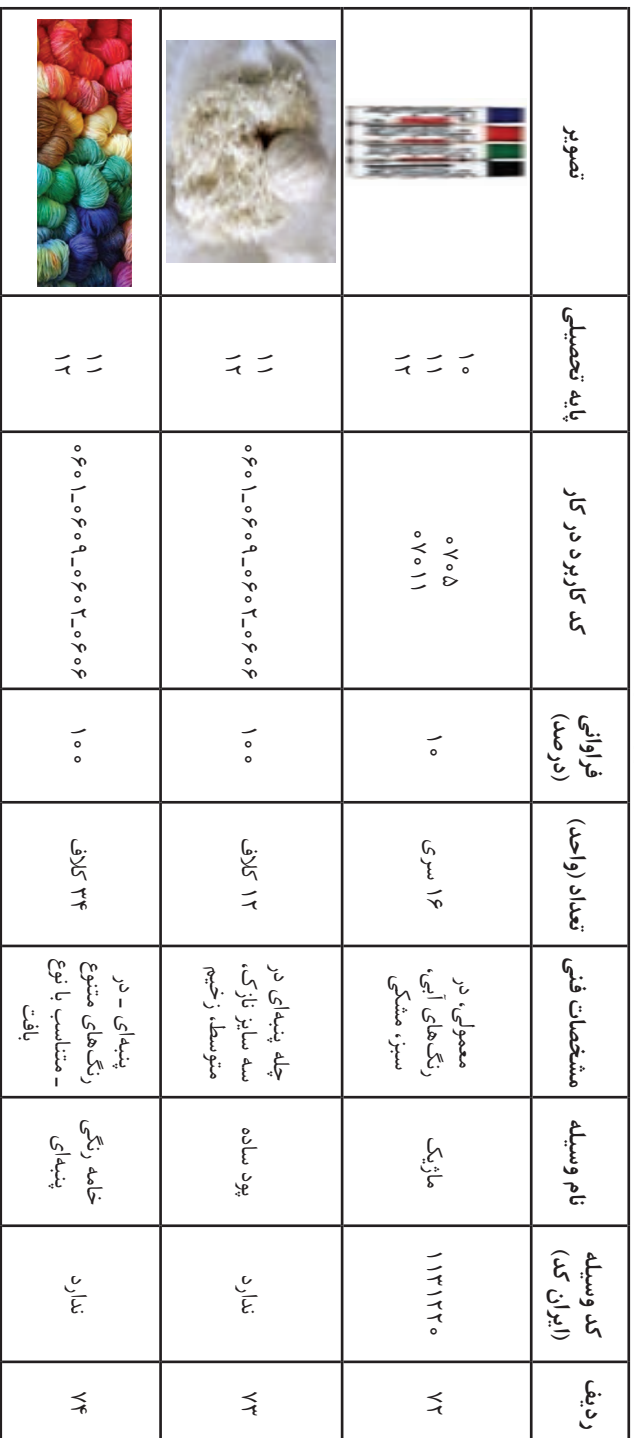 ردیف
کد وسیله
(ایران کد)
نام وسیله
مشخصات فنی
تعداد (واحد)
فراوانی
(درصد)
کد کاربرد در کار
پایه تحصیلی
تصویر
۷۲
۱۱۳۱۲۲۰
ماژیک
معمولی، در
رنگ‌های آبی،
سبز، مشکی
۱۶ سری
۱۰
۰۷۰۵
۰۷۰۱۱
۱۰
۱۱
۱۲
۷۳
ندارد
پود ساده
چله پنبه‌ای در
سه سایز نازک،
متوسط، زخیم
۱۲ کلاف
۱۰۰
۰۶۰۱_۰۶۰۹_۰۶۰۲_۰۶۰۶
۱۱
۱۲
۷۴
ندارد
خامه رنگی
پنبه‌ای
پنبه‌ای ـ در
رنگ‌های متنوع
ـ متناسب با نوع
بافت
۳۴ کلاف
۱۰۰
۰۶۰۱_۰۶۰۹_۰۶۰۲_۰۶۰۶
۱۱
۱۲